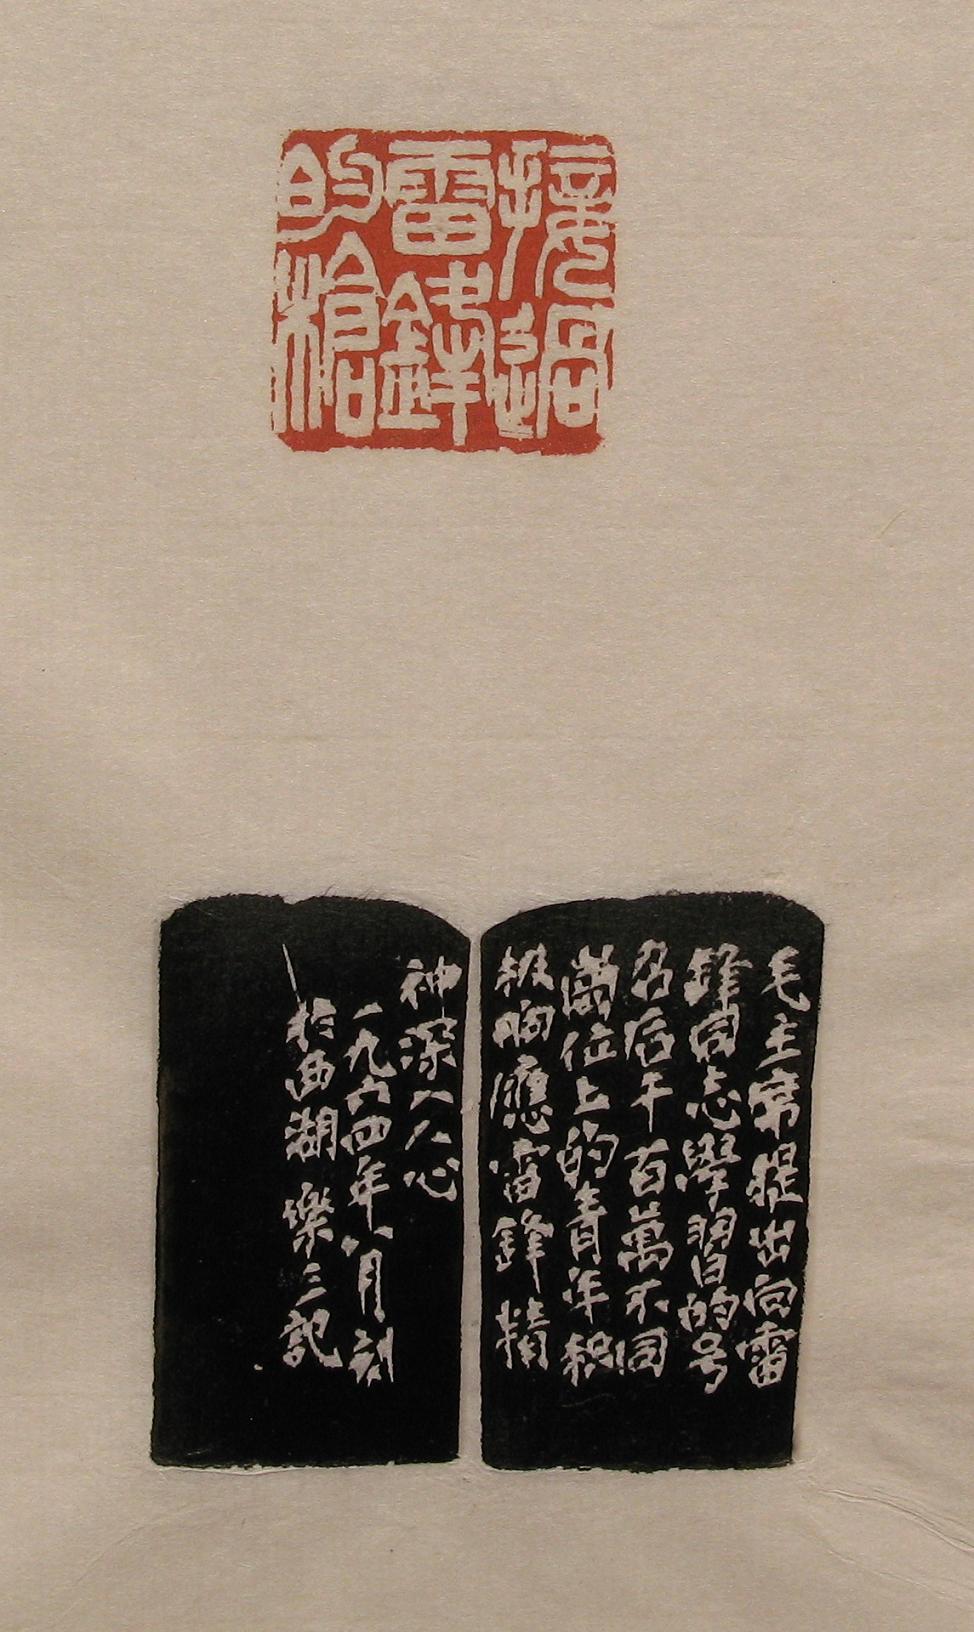 接過
雷鋒
的槍
毛主席提出向雷
鋒同志學習的号
召后千百萬不同
崗位上的青年积
极响應雷鋒精
神深入人心
一九六四年八月刻
於西湖 樂三記